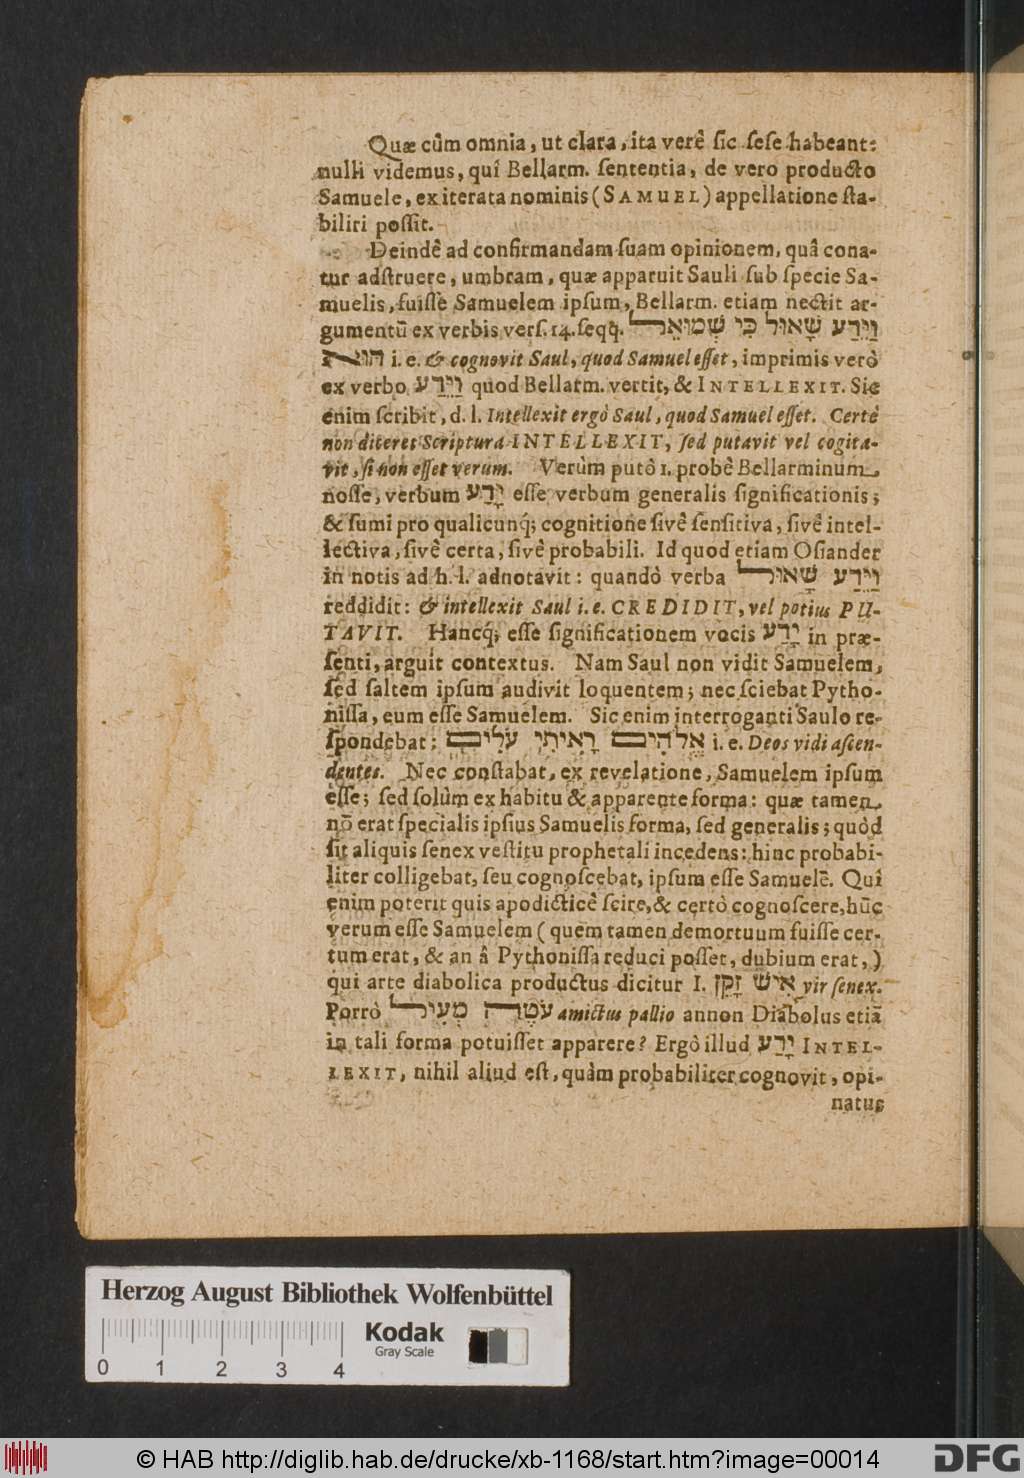 Quæ cûm omnia, ut clara, ita verê sic sese habeant:
nulli videmus, quî Bellarm. sententia, de vero producto
Samuele, ex iterata nominis (SAMUEL) appellatione sta-
biliri possit.
Deindê ad confirmandam suam opinionem, quâ cona-
tur adstruere, umbram, quæ apparuit Sauli sub specie Sa-
muelis, fuisse Samuelem ipsum, Bellarm. etiam nectit ar-
gumentū ex verbis vers. 14. seqq. וַיֵּדַע שָׁאוּל כִּי שְׁמוּאֵל
הוּא i. e. & cognovit Saul, quod Samuel esset, imprimis verò
ex verbo וַיֵּדַע quod Bellarm. vertit, & INTELLEXIT. Sic
enim scribit, d. l. Intellexit ergò Saul, quod Samuel esset. Certè
non diceret Scriptura INTELLEXIT, sed putavit vel cogita-
vit, si non esset verum. Verùm putò 1. probê Bellarminum
nosse, verbum יָדַע esse verbum generalis significationis;
& sumi pro qualicunq; cognitione sivê sensitiva, sivê intel-
lectiva, sivê certa, sivê probabili. Id quod etiam Osiander
in notis ad h. l. adnotavit: quandò verba וַיֵּדַע שָׁאוּל
reddidit: & intellexit Saul i. e. CREDIDIT, vel potius PU-
TAVIT. Hancq; esse significationem vocis יָדַע in præ-
senti, arguit contextus. Nam Saul non vidit Samuelem,
sed saltem ipsum audivit loquentem; nec sciebat Pytho-
nissa, eum esse Samuelem. Sic enim interroganti Saulo re-
spondebat: אֱלֹהִים רָאִיתִי עֹלִים i. e. Deos vidi ascen-
dentes. Nec constabat, ex revelatione, Samuelem ipsum
esse; sed solùm ex habitu & apparente forma: quæ tamen
nō erat specialis ipsius Samuelis forma, sed generalis; quòd
sit aliquis senex vestitu prophetali incedens: hinc probabi-
liter colligebat, seu cognoscebat, ipsum esse Samuelē. Quî
enim poterit quis apodicticê scire, & certò cognoscere, hūc
verum esse Samuelem (quem tamen demortuum fuisse cer-
tum erat, & an â Pythonissa reduci posset, dubium erat,)
qui arte diabolica productus dicitur I. אִישׁ זָקֵן vir senex.
Porrò עֹטֶה מְעִיל amictus pallio annon Diabolus etiā
in tali forma potuisset apparere? Ergò illud יָדַע INTEL-
LEXIT, nihil aliud est, quàm probabiliter cognovit, opi-
natus
Herzog August Bibliothek Wolfenbüttel
Kodak
Gray Scale
0 1 2 3 4
© HAB http://diglib.hab.de/drucke/xb-1168/start.htm?image=00014
DFG